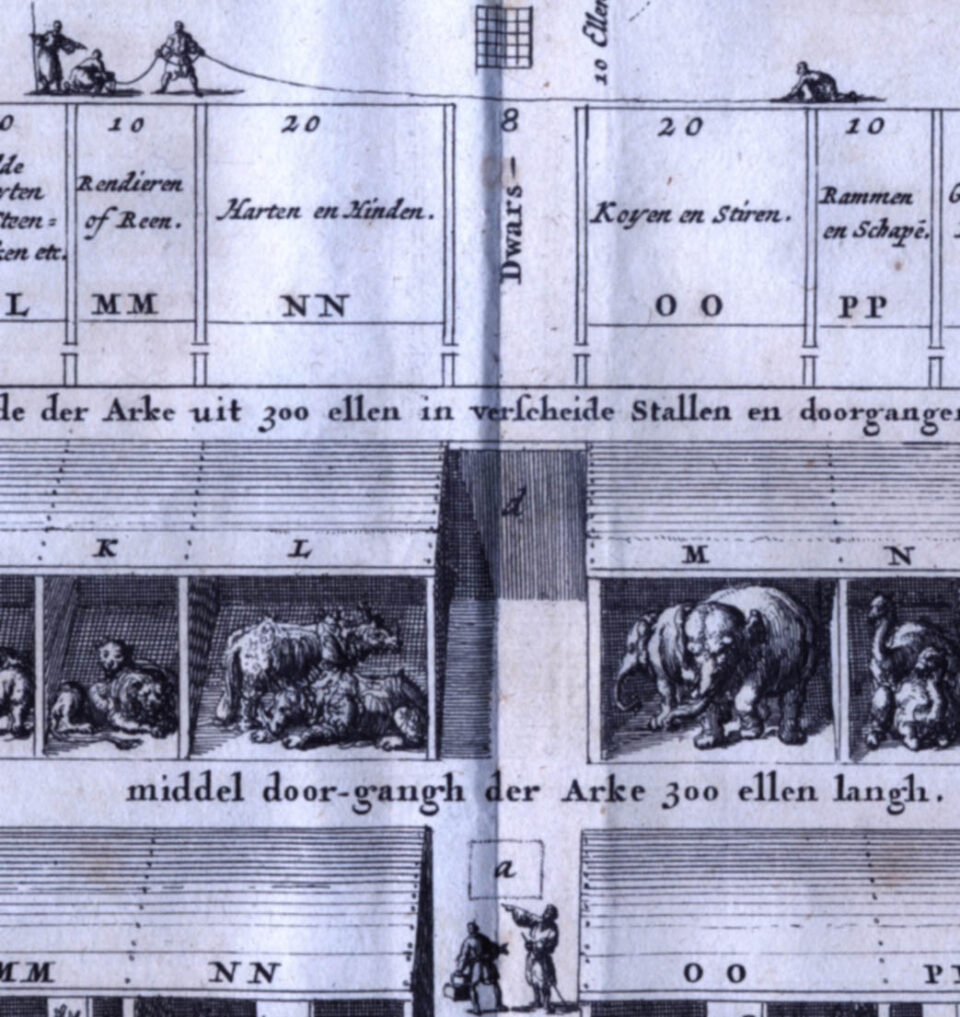 10 Ellen
0 10 20 8 20 10
lde
Rendieren
of Reen.
Harten en Hinden.
Dwars-
Koyen en Stiren.
Rammen
en Schapē.
ken etc.
L MM NN O O PP
de der Arke uit 300 ellen in verscheide Stallen en doorgangen
d
K L M N
middel door-gangh der Arke 300 ellen langh.
a
MM NN O O P